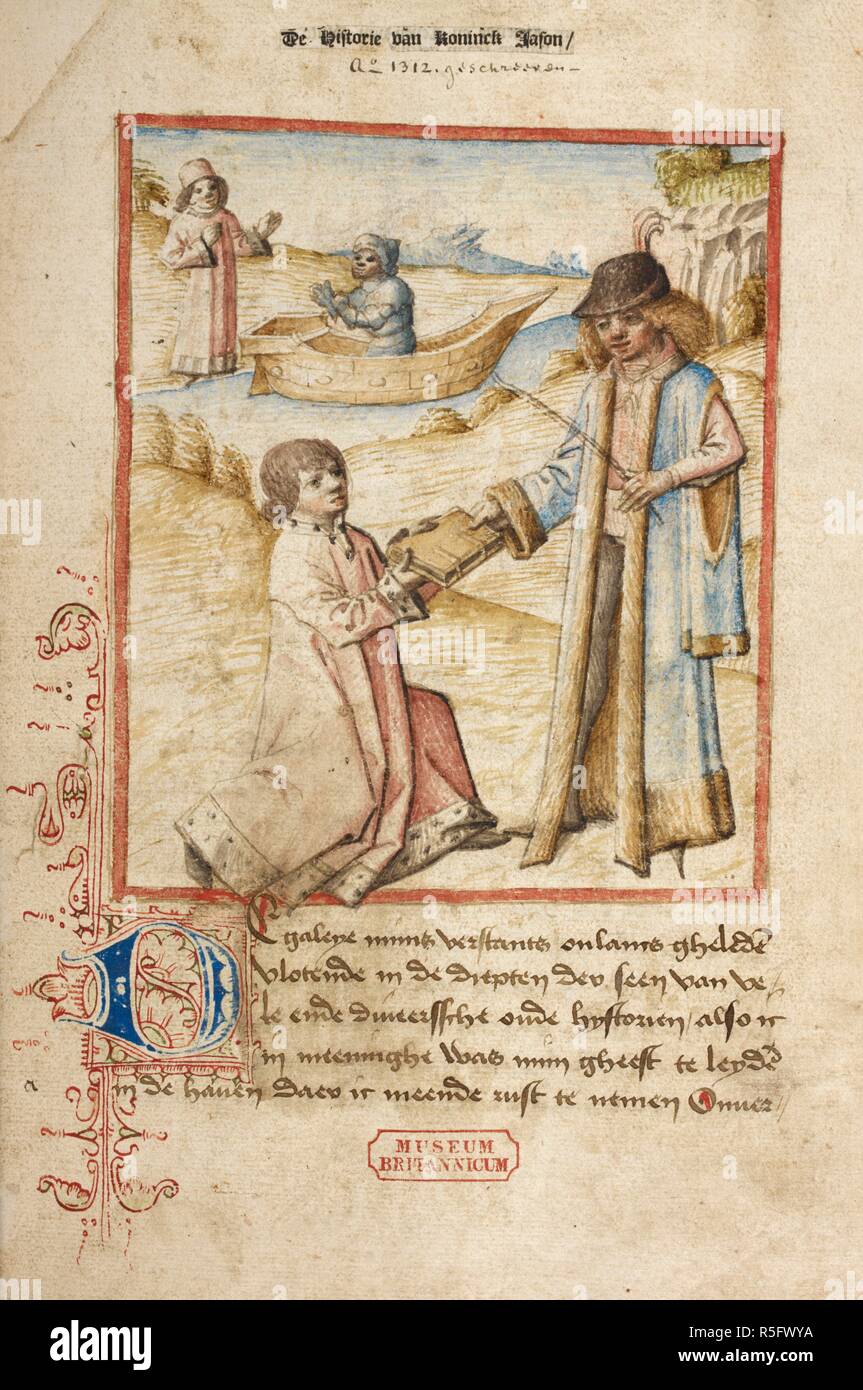 De Historie van Koninck Jason/
Ao 1312. geschreeven-
De galeye mijns verstants onlancs gheledē
vlotende in de diepten der seen van ve-
le ende diveerssche oude hystorien/ also ic
in meeninghe was mijn gheest te leydē
in de havē daer ic meende rust te nemen Onver-
a
MUSEUM
BRITANNICUM
alamy
Image ID: R5FWYA
www.alamy.com